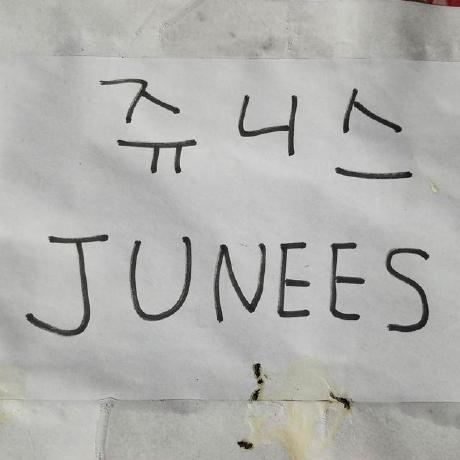 쥬니스
JUNEES